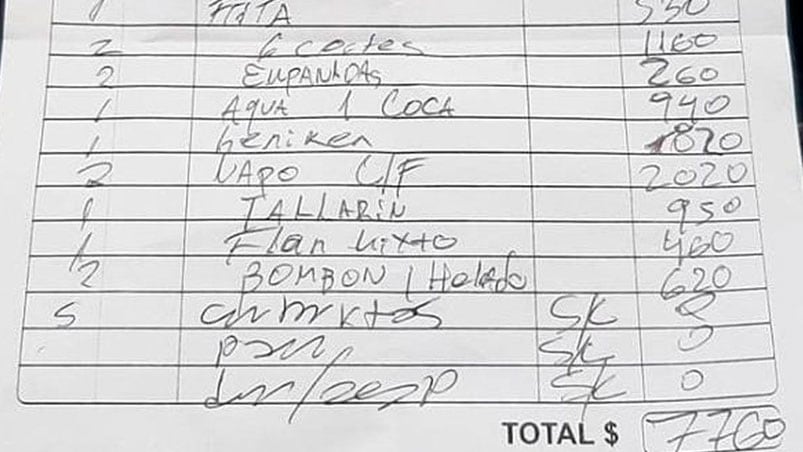 1 FRITA 530
2 Gcocles 1160
2 EMPANADAS 260
1 AGUA 1 COCA 940
1 heniken 820
2 VAPO C/F 2020
1 TALLARIN 950
1 Flan Mixto 460
2 BOMBON / Helado 620
5 cubiertos S/C 0
pan S/C 0
S/C 0
TOTAL $ 7760